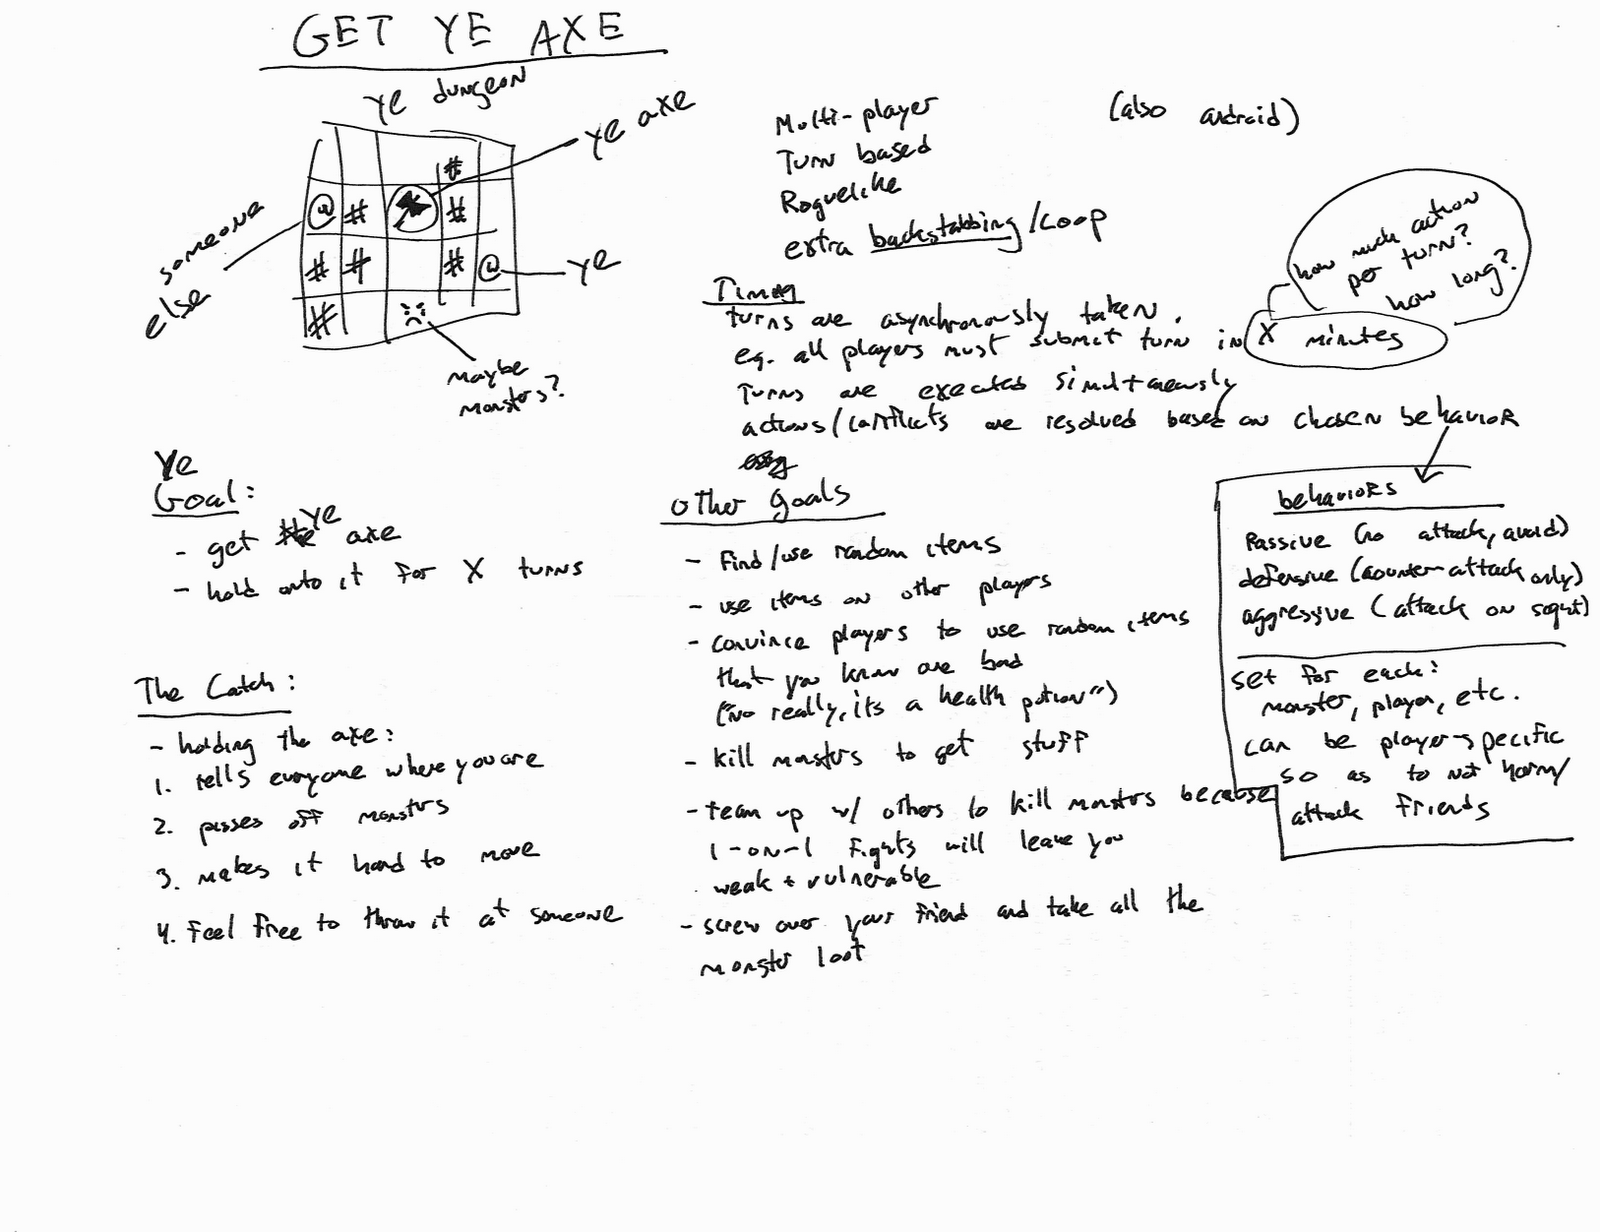 GET YE AXE
ye dungeon
ye axe
#
@ # #
# # # @
#
someone
else
ye
maybe
monsters?
Multi-player
Turn based
Roguelike
extra backstabbing/coop
(also android)
Timing
turns are asynchronously taken.
e.g. all players must submit turn in X minutes
Turns are executed simultaneously
actions/conflicts are resolved based on chosen behavior
how much action
per turn?
how long?
Ye
Goal:
- get ye axe
- hold onto it for X turns
The Catch:
- holding the axe:
1. tells everyone where you are
2. pisses off monstrs
3. makes it hard to move
4. Feel free to throw it at someone
other goals
- Find/use random items
- use items on other players
- convince players to use random items
that you know are bad
("no really, its a health potion")
- kill monsters to get stuff
- team up w/ others to kill monstrs because
1-on-1 fights will leave you
weak + vulnerable
- screw over your friend and take all the
monster loot
behaviors
Passive (no attack, avoid)
defensive (counter-attack only)
aggressive (attack on sight)
set for each:
monster, player, etc.
can be player-specific
so as to not harm/
attack friends